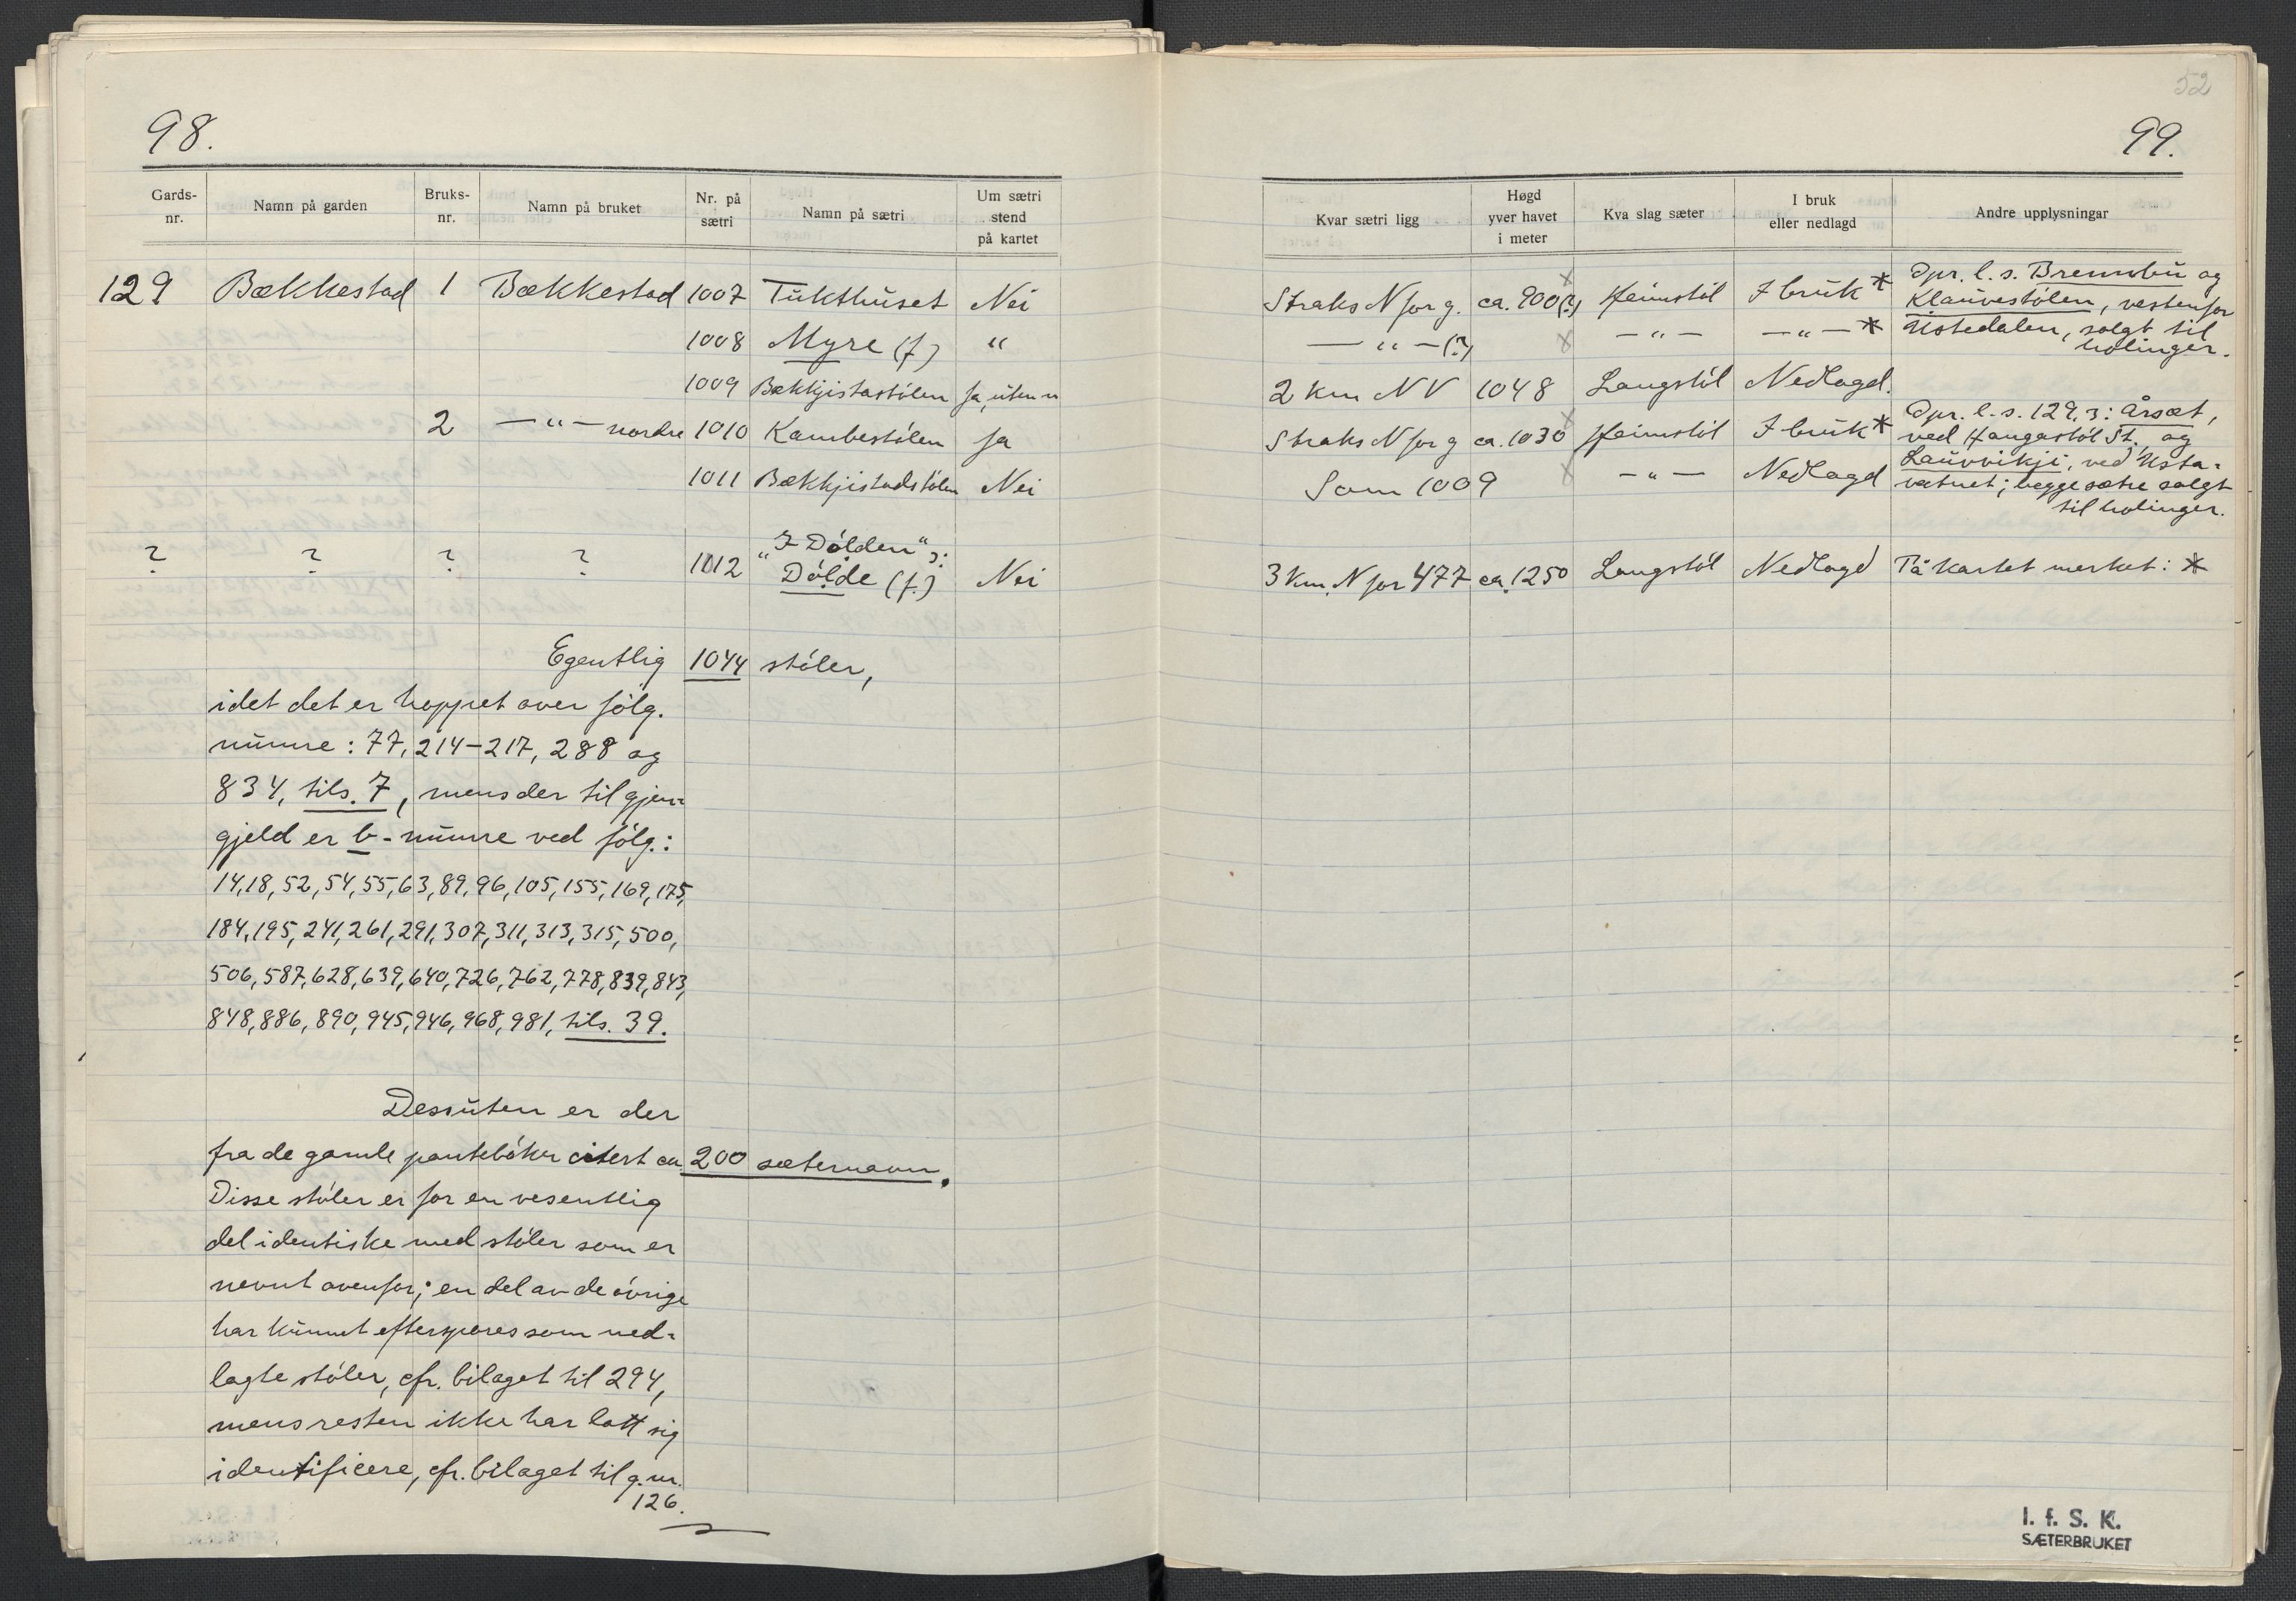 98.
Gards-nr. Namn på garden Bruks-nr. Namn på bruket Nr. på sætri Namn på sætri Um sætri stend på kartet
129 Bækkestad 1 Bækkestad 1007 Tukthuset Nei
1008 Myre (f) "
1009 Bækkjistastølen Ja, uten n
2 —"— nordre 1010 Kambestølen Ja
1011 Bækkjistadstølen Nei
? ? ? ? 1012 "I Dølden" ɔ: Dølde (f.) Nei
Egentlig 1044 støler,
idet det er hoppet over følg.
numre: 77, 214–217, 288 og
834, tils. 7, mens der til gjen-
gjeld er b-numre ved følg.:
14, 18, 52, 54, 55, 63, 89, 96, 105, 155, 169, 175,
184, 195, 241, 261, 291, 307, 311, 313, 315, 500,
506, 587, 628, 639, 640, 726, 762, 778, 839, 843,
848, 886, 890, 945, 946, 968, 981, tils. 39.
Dessuten er der
fra de gamle pantebøker citert ca. 200 sæternavn.
Disse støler er for en vesentlig
del identiske med støler som er
nevnt ovenfor; en del av de øvrige
har kunnet efterspores som ned-
lagte støler, cfr. bilaget til 294,
mens resten ikke har latt sig
identificere, cfr. bilaget til g.nr.
126.
52
99.
Kvar sætri ligg Høgd yver havet i meter Kva slag sæter I bruk eller nedlagd Andre upplysningar
Straks N for g. ca. 900(?) Heimstøl I bruk * Opr. l. s. Brennbu og
Klauvestølen, vestenfor
—"—(?) —"— —"— * Ustedalen, solgt til
hølinger.
2 km NV 1048 Langstøl Nedlagd.
Straks N for g ca. 1030 Heimstøl I bruk * Opr. l. s. 129,3: Årsæt,
ved Haugastøl St. og
Som 1009 —"— Nedlagd Lauvvikji, ved Usta-
vatnet; begge sætre solgt
til hølinger.
3 km. N for 477 ca. 1250 Langstøl Nedlagd På kartet merket: *
I. f. S. K.
SÆTERBRUKET